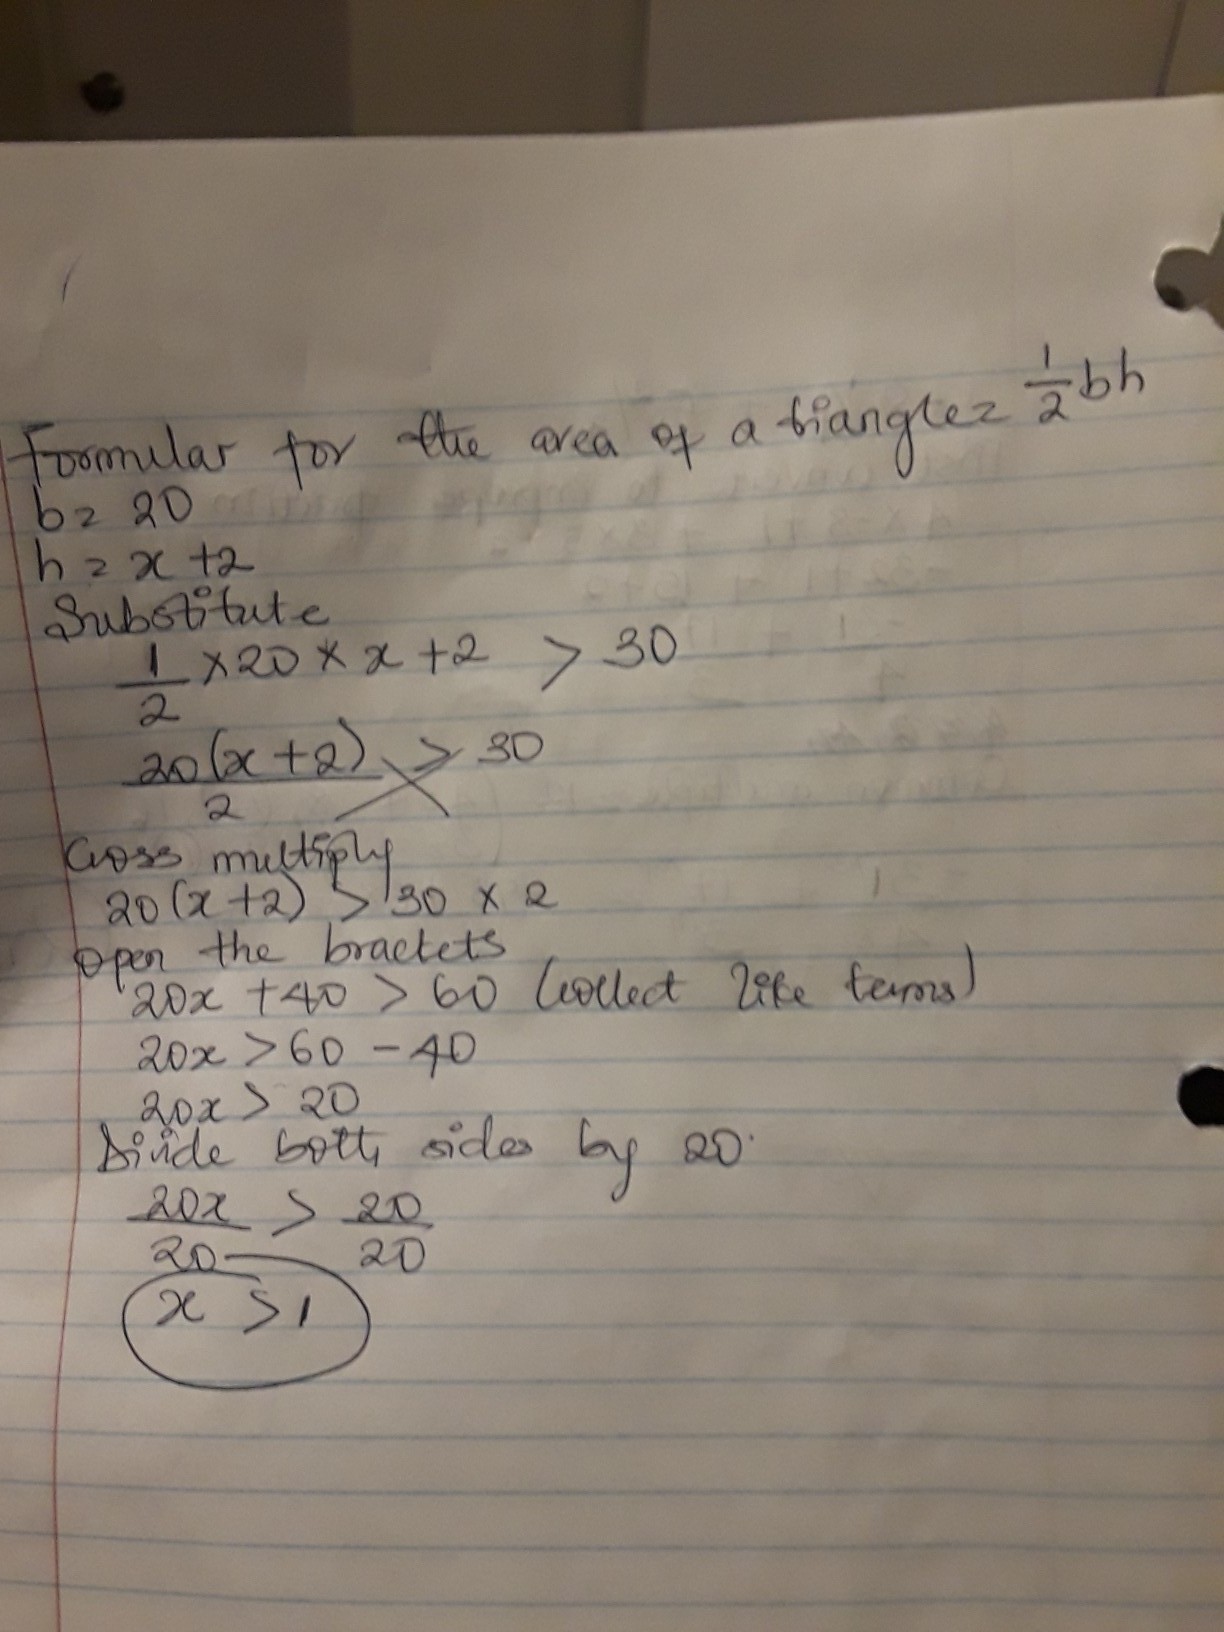 Formular for the area of a triangle = 1/2 bh
b = 20
h = x + 2
Substitute
1/2 × 20 × x + 2 > 30
20(x + 2)/2 > 30
Cross multiply
20(x + 2) > 30 × 2
Open the brackets
20x + 40 > 60 (collect like terms)
20x > 60 - 40
20x > 20
Divide both sides by 20.
20x/20 > 20/20
x > 1